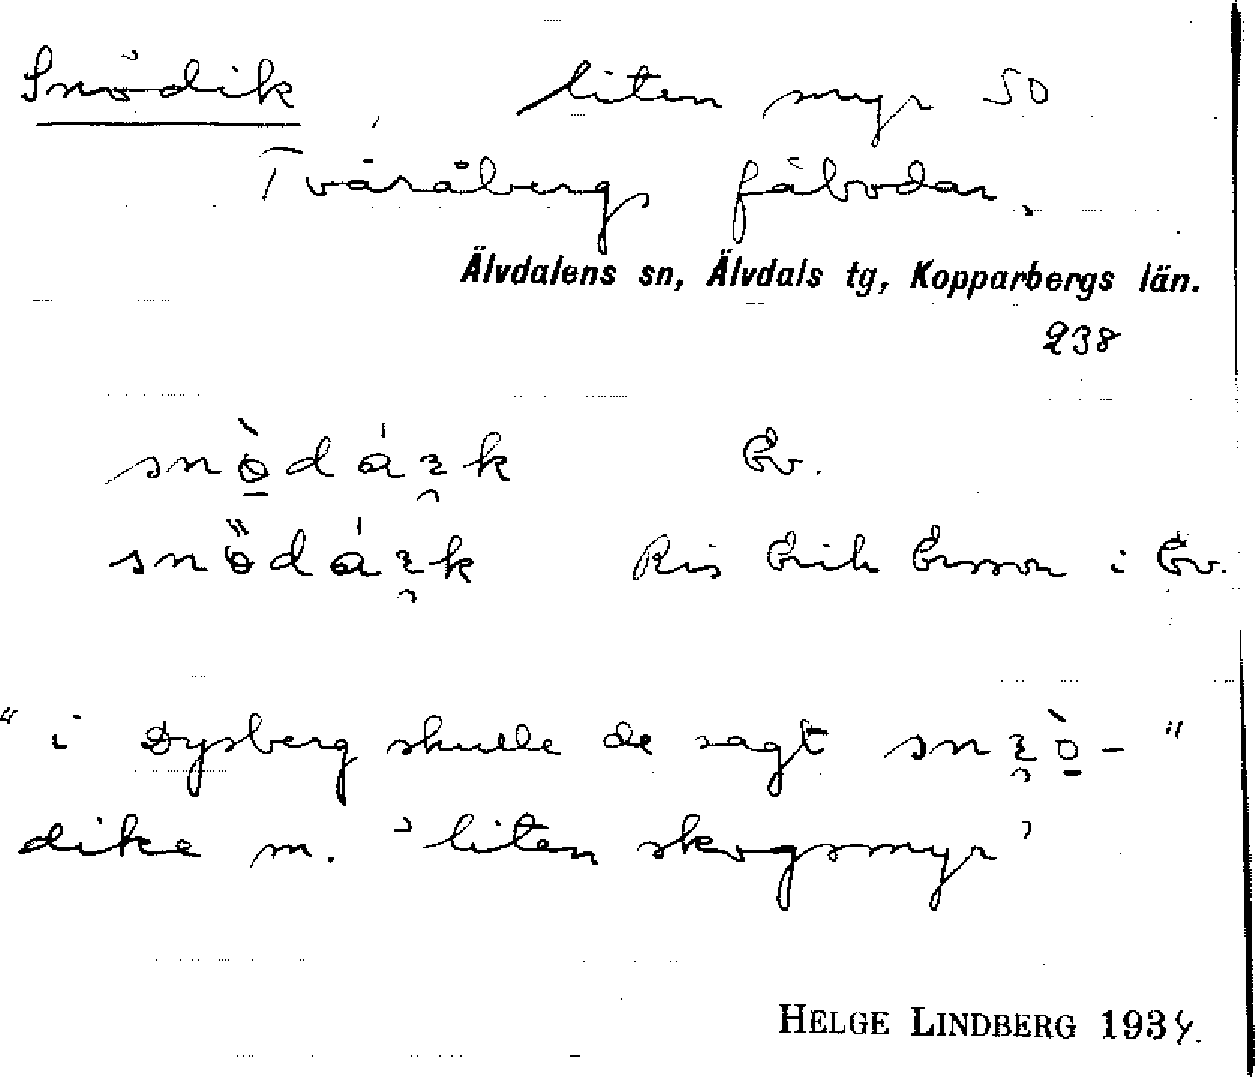 Snödik liten myr SO
Tväråbergs fäbodar,
Älvdalens sn, Älvdals tg, Kopparbergs län.
238
Ev.
Ris Erik Ersson i Ev.
" i Dysberg skulle de sagt
dike m. 'liten skogsmyr'
HELGE LINDBERG 1934.